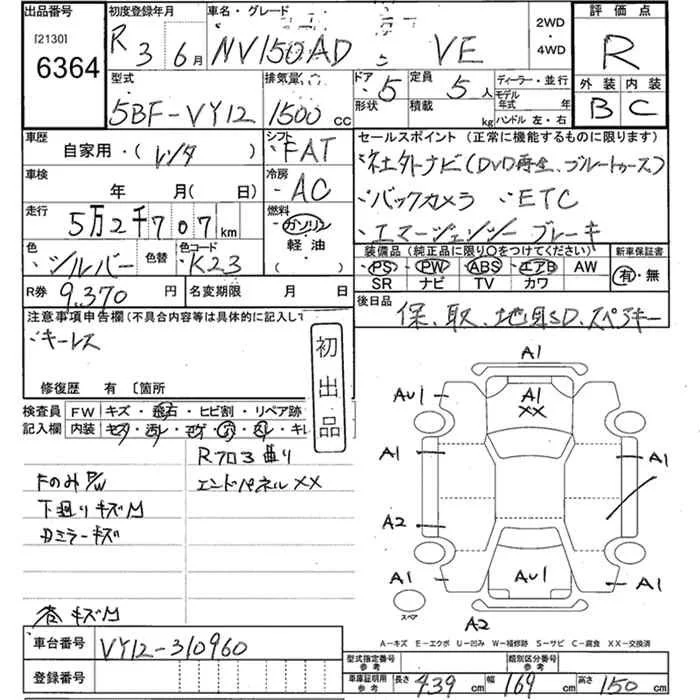 出品番号
[2130]
6364
初度登録年月
R 3 6月
車名・グレード
NV150AD VE
2WD
・
4WD
評価点
R
外装 内装
B C
型式
5BF-VY12
排気量
1500 cc
ドア 5
形状
定員 5 人
積載 kg
ディーラー・並行
モデル年式 年
ハンドル 左・右
車歴
自家用・(レンタ)
シフト
FAT
車検
年 月(日)
冷房
AC
走行
5万2千707 km
燃料
ガソリン
軽油
色
シルバー
色替
色コード
K23
R券 9,370 円
名変期限 月 日
セールスポイント (正常に機能するものに限ります)
社外ナビ(DVD再生、ブルートゥース)
バックカメラ ・ETC
エマージェンシー ブレーキ
装備品 (純正品に限り○をつけてください)
PS PW ABS エアB AW
SR ナビ TV カワ
新車保証書
有・無
後日品
保、取、地図SD、スペアキー
注意事項申告欄(不具合内容等は具体的に記入して
キーレス
修復歴 有〔箇所
初出品
検査員
記入欄
FW キズ・飛石・ヒビ割・リペア跡
内装 コゲ・穴
Rフロア曲り
エンドパネルXX
FのみP/W
下廻りキズM
カミラーキズ
キズM
A1
AU1
A1
XX
A1
A1
A2
A1
AU1
A1
スペア
A2
A-キズ E-エクボ U-凹み W-補修跡 S-サビ C-腐食 XX-交換済
車台番号 VY12-310960
登録番号
型式指定番号
参考
類別区分番号
参考
車庫証明用
参考
長さ 439 cm 幅 169 cm 高さ 150 cm